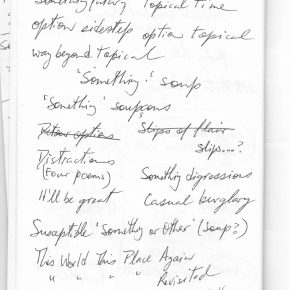 Topical Time
option sidestep option topical
way beyond topical
'Something!' soup
'Something' soupçons
options Slips of flair
slips...?
Distractions
(Four poems) Something digressions
It'll be great Casual burglary
Susceptible 'Something or Other' (Soup?)
This World This Place Again
" " " " Revisited